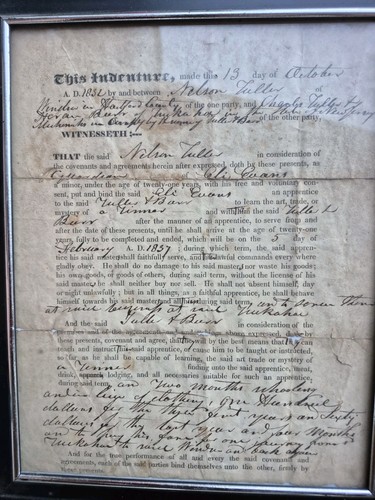 This Indenture, made this 13 day of October
A. D. 1832 by and between Nelson Fuller of
Windsor in Hartford County of the one party, and Charles Fuller &
of the other party,
WITNESSETH:
THAT the said Nelson Fuller in consideration of
the covenants and agreements herein after expressed, doth by these presents, as
Guardian Eli Evans
a minor, under the age of twenty-one years, with his free and voluntary con-
sent, put and bind the said Eli Evans an apprentice
to the said Fuller & Burr to learn the art, trade, or
mystery of a Tanner and with the said Fuller &
Burr after the manner of an apprentice, to serve from and
after the date of these presents, until he shall arrive at the age of twenty-one
years, fully to be completed and ended, which will be on the 5 day of
February A. D. 1837; during which term, the said appren-
tice his said master shall faithfully serve, and his lawful commands every where
gladly obey. He shall do no damage to his said master, nor waste his goods;
his own goods, or goods of others, during said term, without the license of his
said master, he shall neither buy nor sell. He shall not absent himself, day
or night unlawfully; but in all things, as a faithful apprentice, he shall behave
himself towards his said master and all his, during said term,
at said Tuckahoe
And the said Fuller & Burr in consideration of the
these presents, covenant and agree, that by the best means that can
teach and instruct said apprentice, or cause him to be taught or instructed,
so far as he shall be capable of learning, the said art trade or mystery of
a Tanner finding unto the said apprentice, meat,
drink, lodging, and all necessaries suitable for such an apprentice,
during said term, an two months schooling
and in lieu of clothing, give Hundred
dollars for the three first years an fifty
dollars for the last year and four months
an to pay his fare for one journey from
Tuckahoe to said Windsor an back again
And for the true performance of all and every the said covenant and
agreements, each of the said parties bind themselves unto the other, firmly by
these presents.